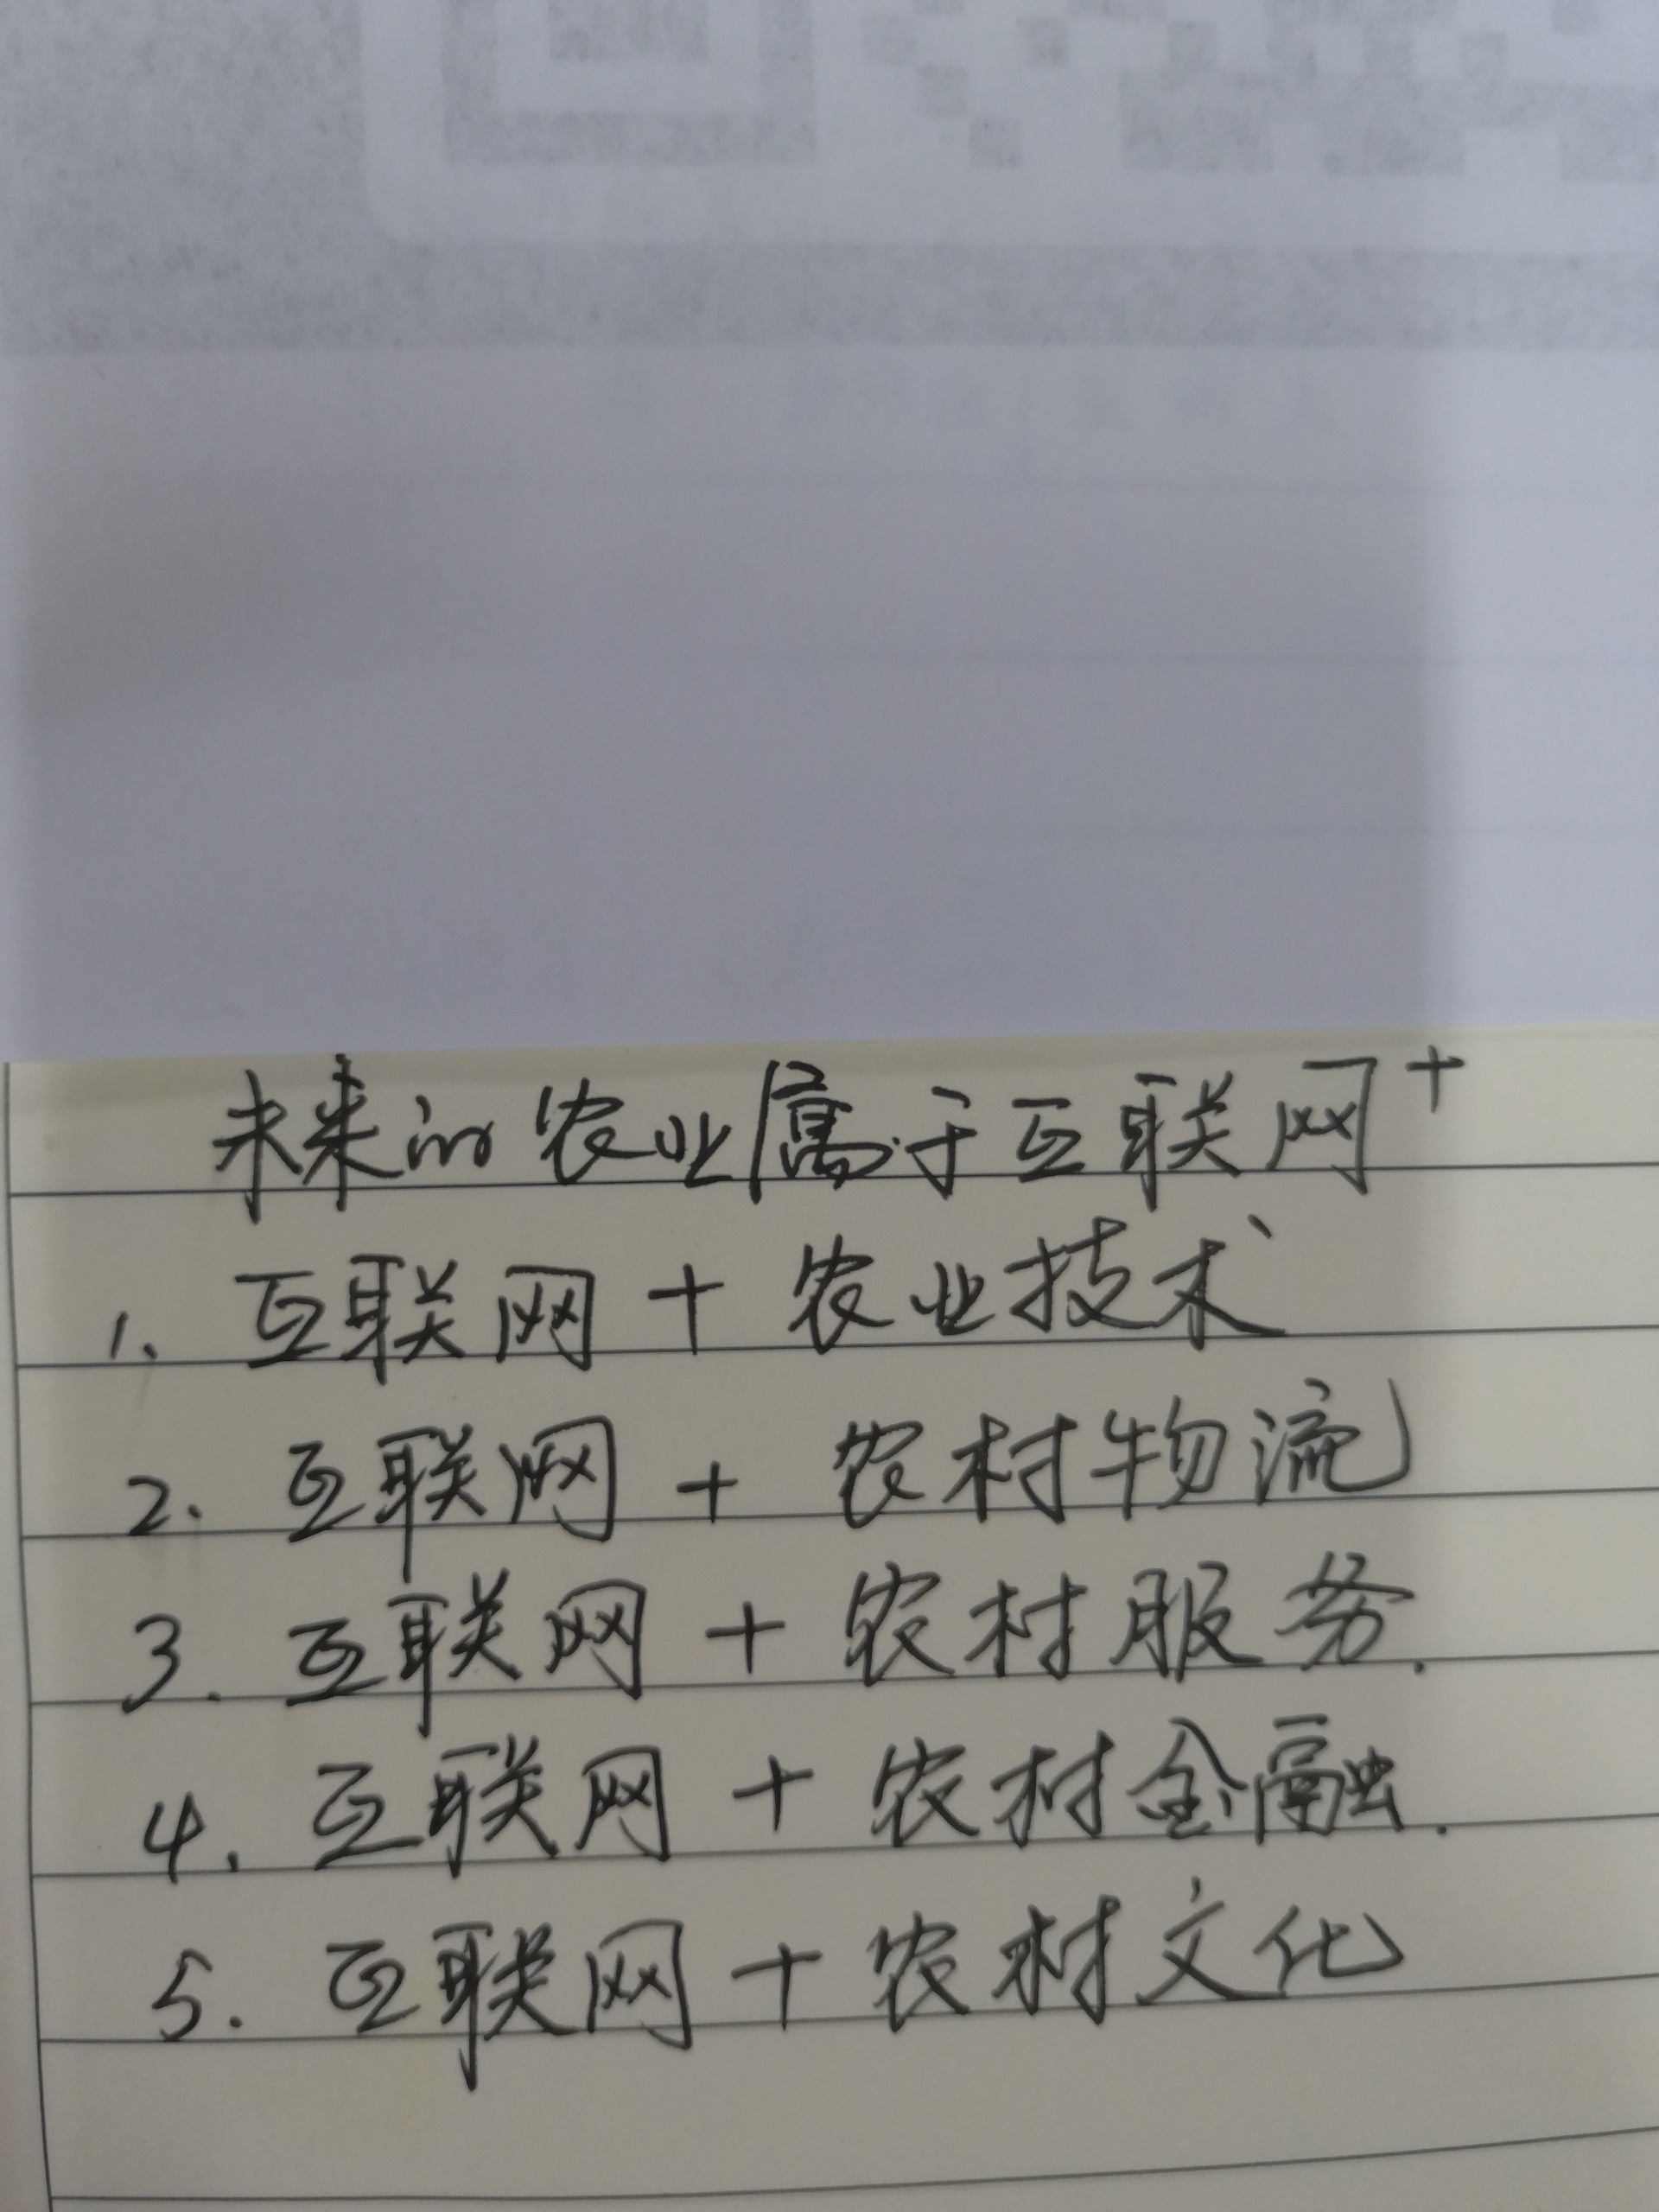 未来的农业属于互联网+
1. 互联网 + 农业技术
2. 互联网 + 农村物流
3. 互联网 + 农村服务.
4. 互联网 + 农村金融.
5. 互联网 + 农村文化